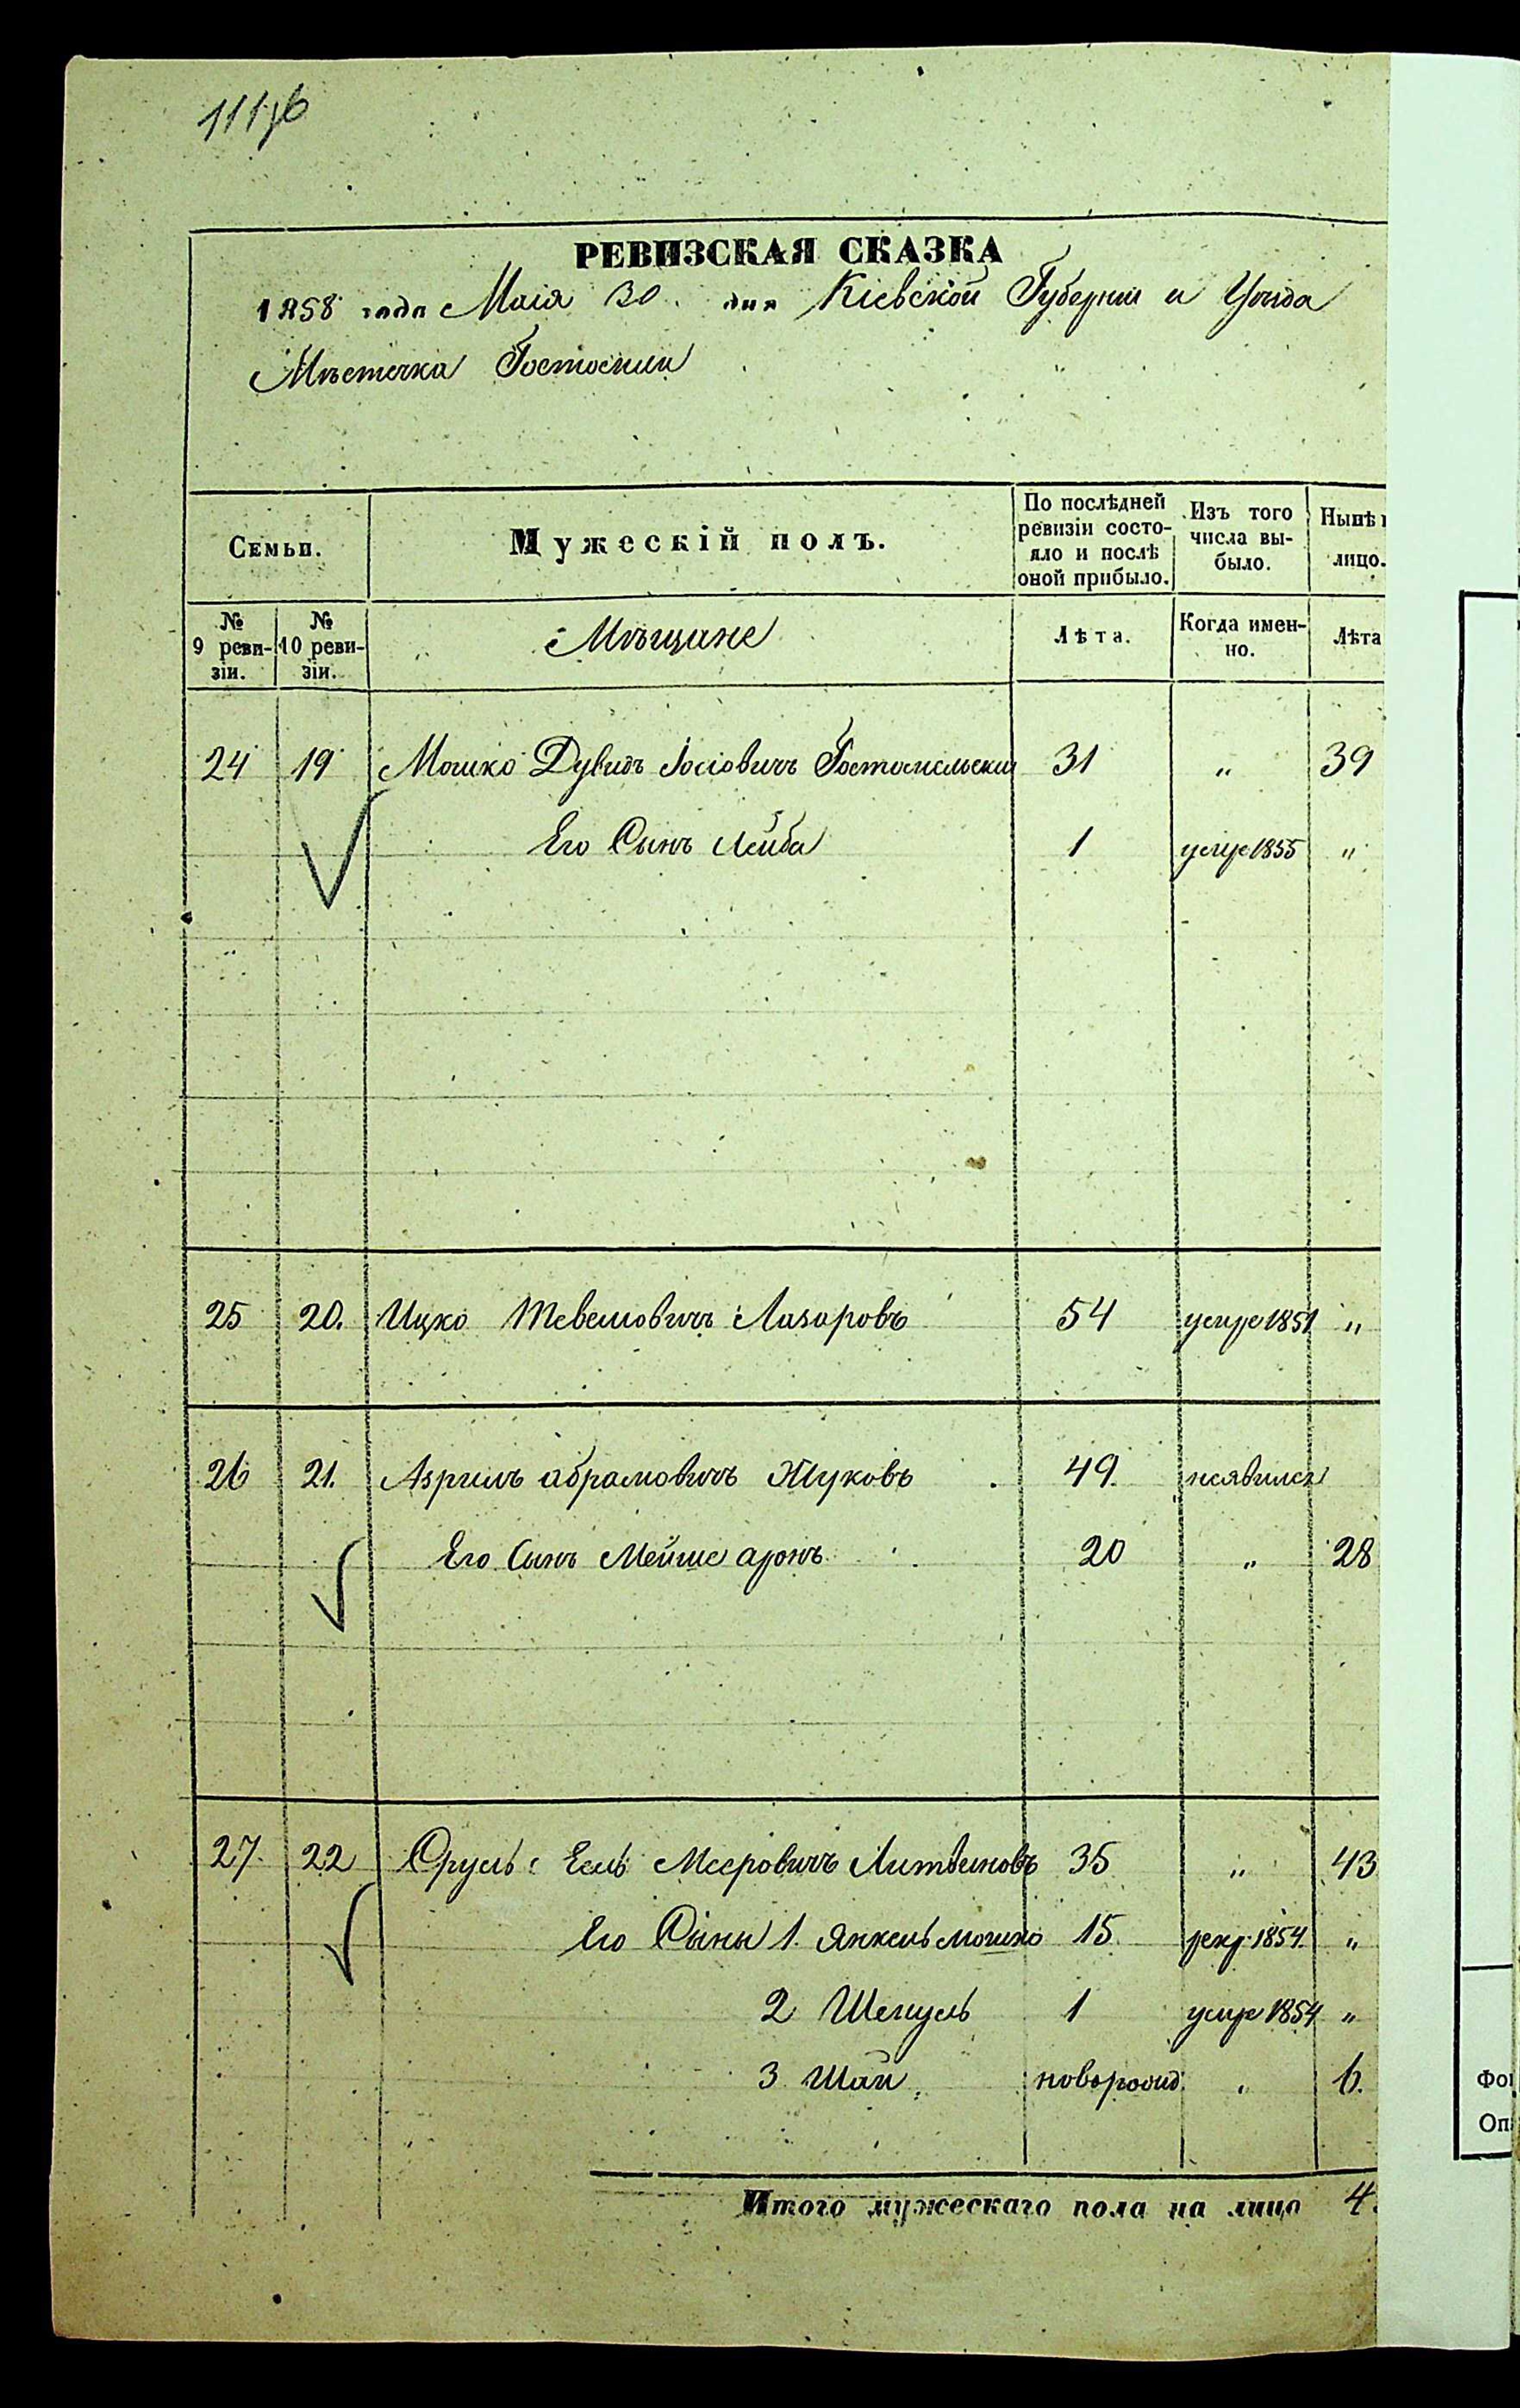 111 об
РЕВИЗСКАЯ СКАЗКА
1858 года Маія 30. дня Кіевской Губерніи и Уѣзда
Мѣстечка Гостомля
Семьи. Мужескій полъ. По послѣдней ревизіи состояло и послѣ оной прибыло. Изъ того числа выбыло. Нынѣ лицо.
№ 9 ревизіи. № 10 ревизіи. Мѣщане Лѣта. Когда именно. Лѣта
24 19 Мошко Дувидъ Іосіовичъ Гостомельский 31 " 39
Его Сынъ Лейба 1 умре 1855 "
25 20. Ицко Тевелювичъ Лазаровъ 54 умре 1851 "
26 21. Азрилъ абрамовичъ Жуковъ 49. неявился
Его Сынъ Мейше аронъ 20 " 28
27. 22 Сруль Ель Мееровичъ Литвиновъ 35 " 43
Его Сыны 1. Янкель мошко 15. рекр. 1854. "
2 Шмуль 1 умре 1854 "
3 Шая новорожд. " 6.
Итого мужескаго пола на лицо 4.
Фо
Оп